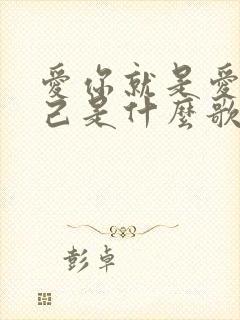 愛你就是愛
己是什麼歌
彭卓